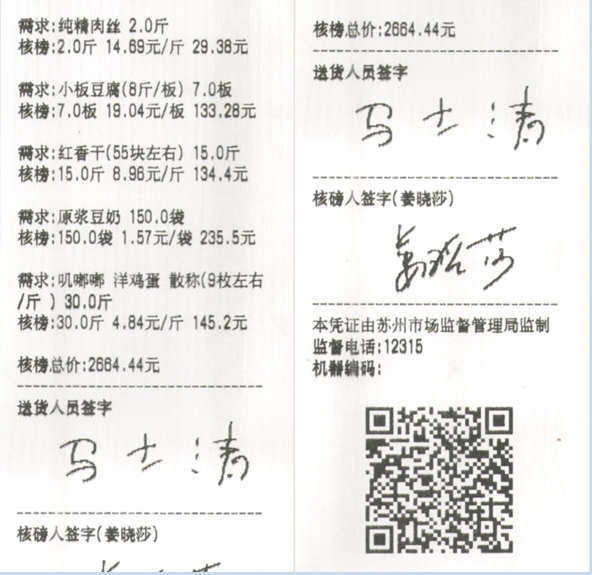 需求:纯精肉丝 2.0斤
核榜:2.0斤 14.69元/斤 29.38元
需求:小板豆腐(8斤/板) 7.0板
核榜:7.0板 19.04元/板 133.28元
需求:红香干(55块左右) 15.0斤
核榜:15.0斤 8.96元/斤 134.4元
需求:原浆豆奶 150.0袋
核榜:150.0袋 1.57元/袋 235.5元
需求:叽嘟嘟 洋鸡蛋 散称(9枚左右
/斤 ) 30.0斤
核榜:30.0斤 4.84元/斤 145.2元
核榜总价:2664.44元
送货人员签字
马士清
核磅人签字(姜晓莎)
核榜总价:2664.44元
送货人员签字
马士清
核磅人签字(姜晓莎)
姜晓莎
本凭证由苏州市场监督管理局监制
监督电话:12315
机器编码: